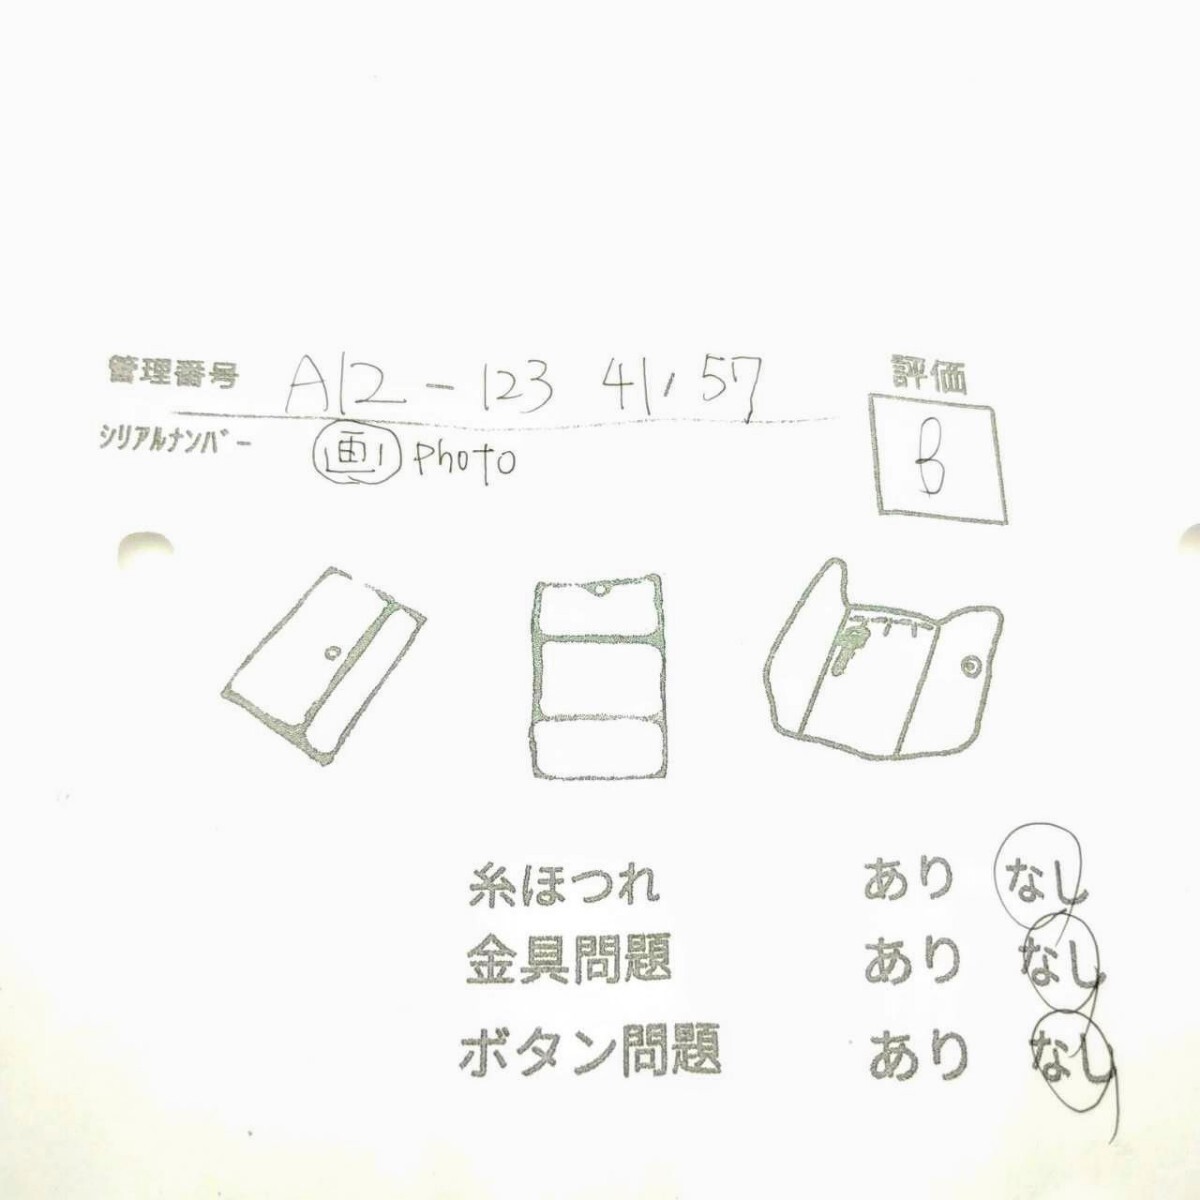 管理番号 A12-123 41,57 評価
シリアルナンバー 画 Photo B
糸ほつれ あり なし
金具問題 あり なし
ボタン問題 あり なし